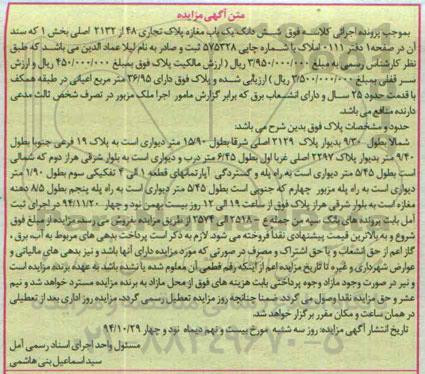 متن آگهی مزایده
بموجب پرونده اجرائی کلاسه فوق شش دانگ یک باب مغازه پلاک تجاری ۴۸ از ۲۱۳۲ اصلی بخش ۱ که سند
آن در صفحه۱ دفتر ۰۱۱۱ املاک با شماره چاپی ۵۷۵۳۲۸ ثبت و صادر به نام لیلا عماد الدین می باشد که طبق
نظر کارشناس رسمی به مبلغ ۳/۹۵۰/۰۰۰/۰۰۰ ریال (ارزش مالکیت پلاک فوق بمبلغ ۴۵۰/۰۰۰/۰۰۰ ریال و ارزش
سر قفلی بمبلغ ۳/۵۰۰/۰۰۰/۰۰۰ ریال) ارزیابی شده و پلاک فوق دارای ۳۶/۹۵ متر مربع اعیانی در طبقه همکف
با قدمت حدود ۲۵ سال و دارای انشعاب برق که برابر گزارش مامور اجرا ملک مزبور در تصرف شخص ثالث مدعی
دارنده منافع می باشد.
حدود و مشخصات پلاک فوق بدین شرح می باشد:
شمالا بطول ۹/۳۰ بدیوار پلاک ۲۱۲۹ اصلی شرقا بطول ۱۵/۹۰ متر دیواری است به پلاک ۱۹ فرعی جنوبا بطول
۹/۴۰ متر بدیوار پلاک ۲۲۹۷ اصلی غربا اول بطول ۶/۴۵ متر درب و دیواری است به بلوار شرقی هراز دوم که شمالی
است بطول ۵/۴۵ متر دیواری است به راه پله و گستردگی آپارتمانهای قطعه ۱ الی ۴ تفکیکی سوم بطول ۱/۹۰ متر
دیواری است به راه پله مزبور چهارم که جنوبی است بطول ۵/۴۵ متر دیواری است به راه پله پنجم بطول ۸۵ دهنه
مغازه است به بلوار شرقی هراز پلاک فوق از ساعت ۱۹ الی ۱۲ روز بیست بهمن نود و چهار ۹۴/۱۱/۲۰ در اجرای ثبت
آمل بابت پرونده های بانک سپه من جمله ع - ۲۵۱۸ الی ۲۵۷۴ از طریق مزایده بفروش می رسد، مزایده از مبلغ فوق
شروع و به بالاترین قیمت پیشنهادی نقدا فروخته می شود. لازم به ذکر است پرداخت بدهی های مربوط به آب، برق ،
گاز اعم از حق انشعاب و یا حق اشتراک و مصرف در صورتی که مورد مزایده دارای آنها باشد و نیز بدهی های مالیاتی و
عوارض شهرداری و غیره تا تاریخ مزایده اعم از اینکه رقم قطعی آن معلوم شده یا نشده باشد به عهده برنده مزایده است
و نیز در صورت وجود مازاد وجوه پرداختی بابت هزینه های فوق از محل مازاد به برنده مزایده مسترد خواهد شد و نیم
عشر و حق مزایده نقدا وصول می گردد. ضمنا چنانچه روز مزایده تعطیل رسمی گردد، مزایده روز اداری بعد از تعطیلی
در همان ساعت و مکان مقرر برگزار خواهد شد.
تاریخ انتشار آگهی مزایده: روز سه شنبه مورخ بیست و نهم دیماه نود و چهار ۹۴/۱۰/۲۹
مسئول واحد اجرای اسناد رسمی آمل
سید اسماعیل بنی هاشمی